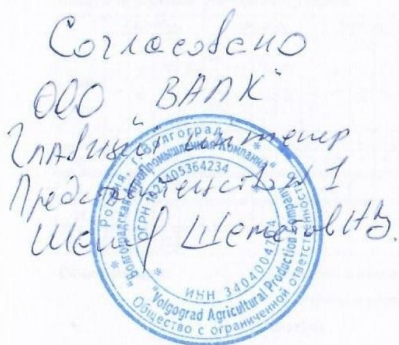 Согласовано
ООО "ВАПК"
Главный инженер
Представительства 1
Шетов Н.В.
* Россия, г. Волгоград *
"Волгоградская АгроПромышленная Компания"
ОГРН 1023405364234
ИНН 3404004764
"Volgograd Agricultural Production Company"
Общество с ограниченной ответственностью